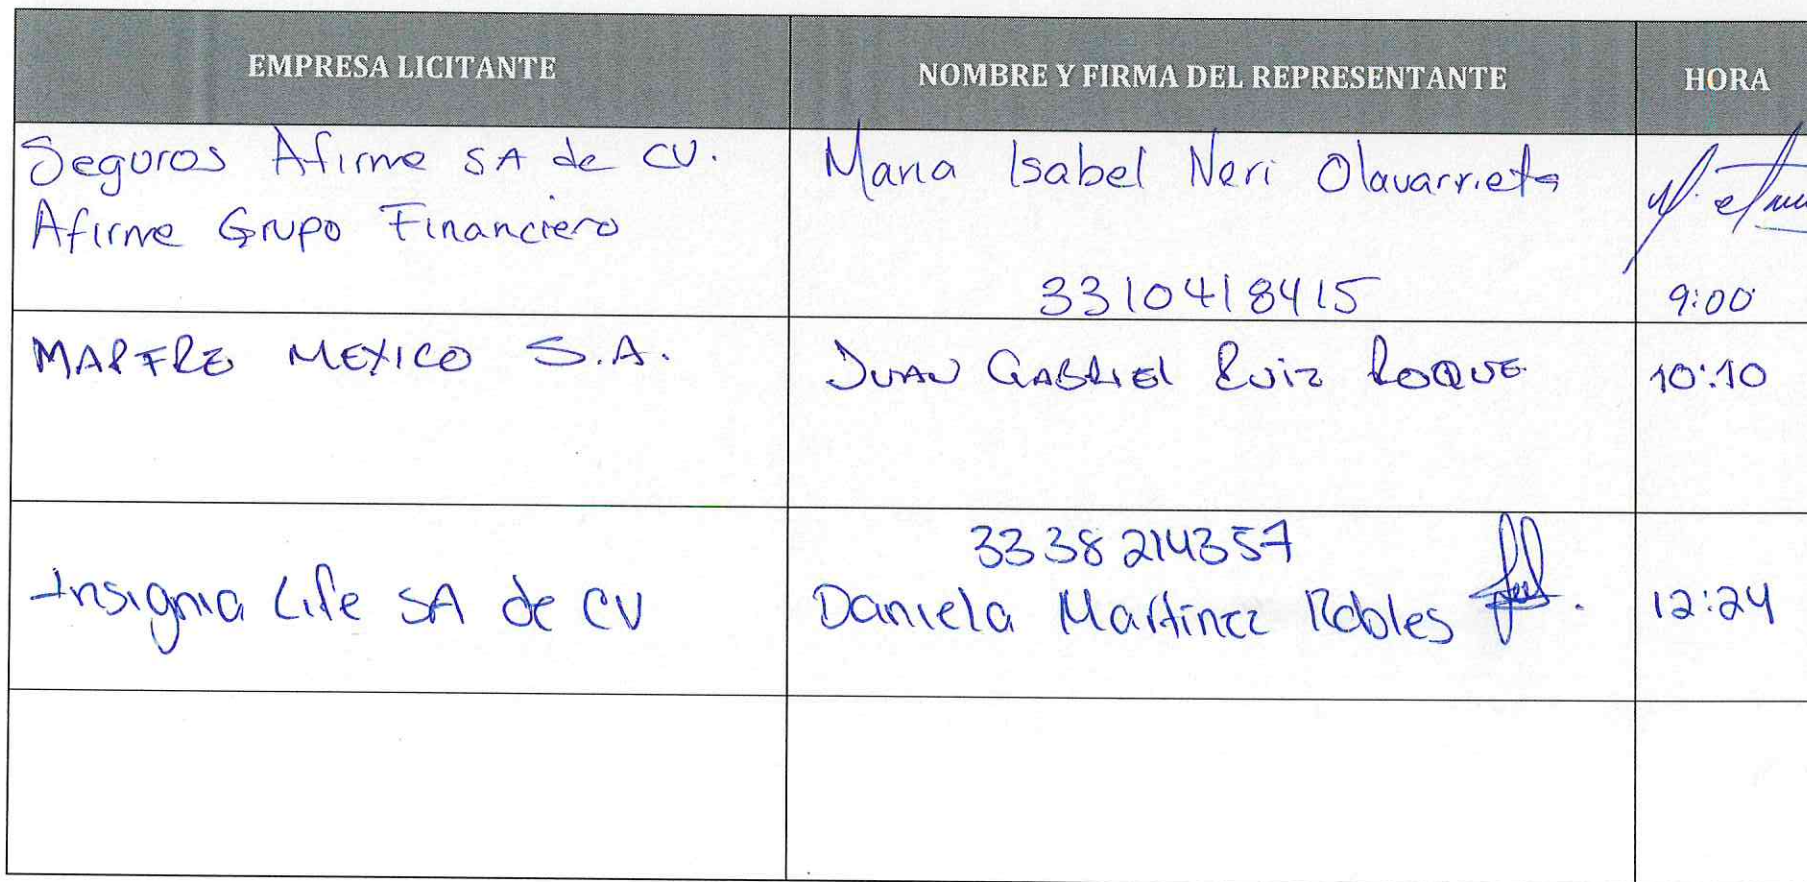 EMPRESA LICITANTE
NOMBRE Y FIRMA DEL REPRESENTANTE
HORA
Seguros Afirme SA de CV.
Afirme Grupo Financiero
Maria Isabel Neri Olavarrieta
3310418415
9:00
MAPFRE MEXICO S.A.
JUAN GABRIEL RUIZ ROQUE
10:10
Insignia Life SA de CV
3338214357
Daniela Martinez Robles
12:24